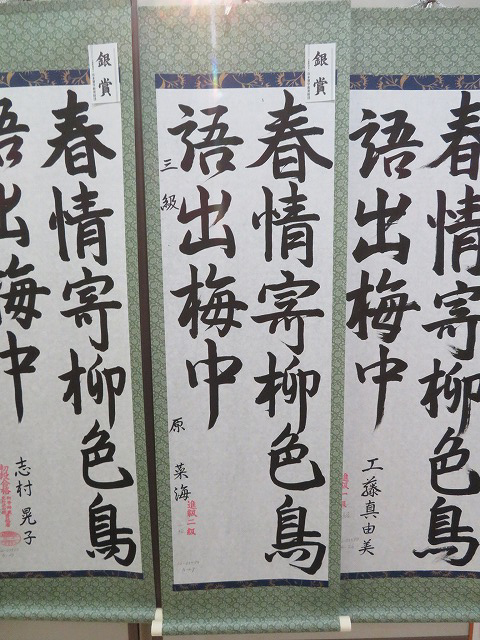 春情寄柳色鳥
語出梅中
工藤真由美
銀賞
春情寄柳色鳥
語出梅中
三級
原菜海
進級二級
銀賞
春情寄柳色鳥
語出梅中
志村晃子